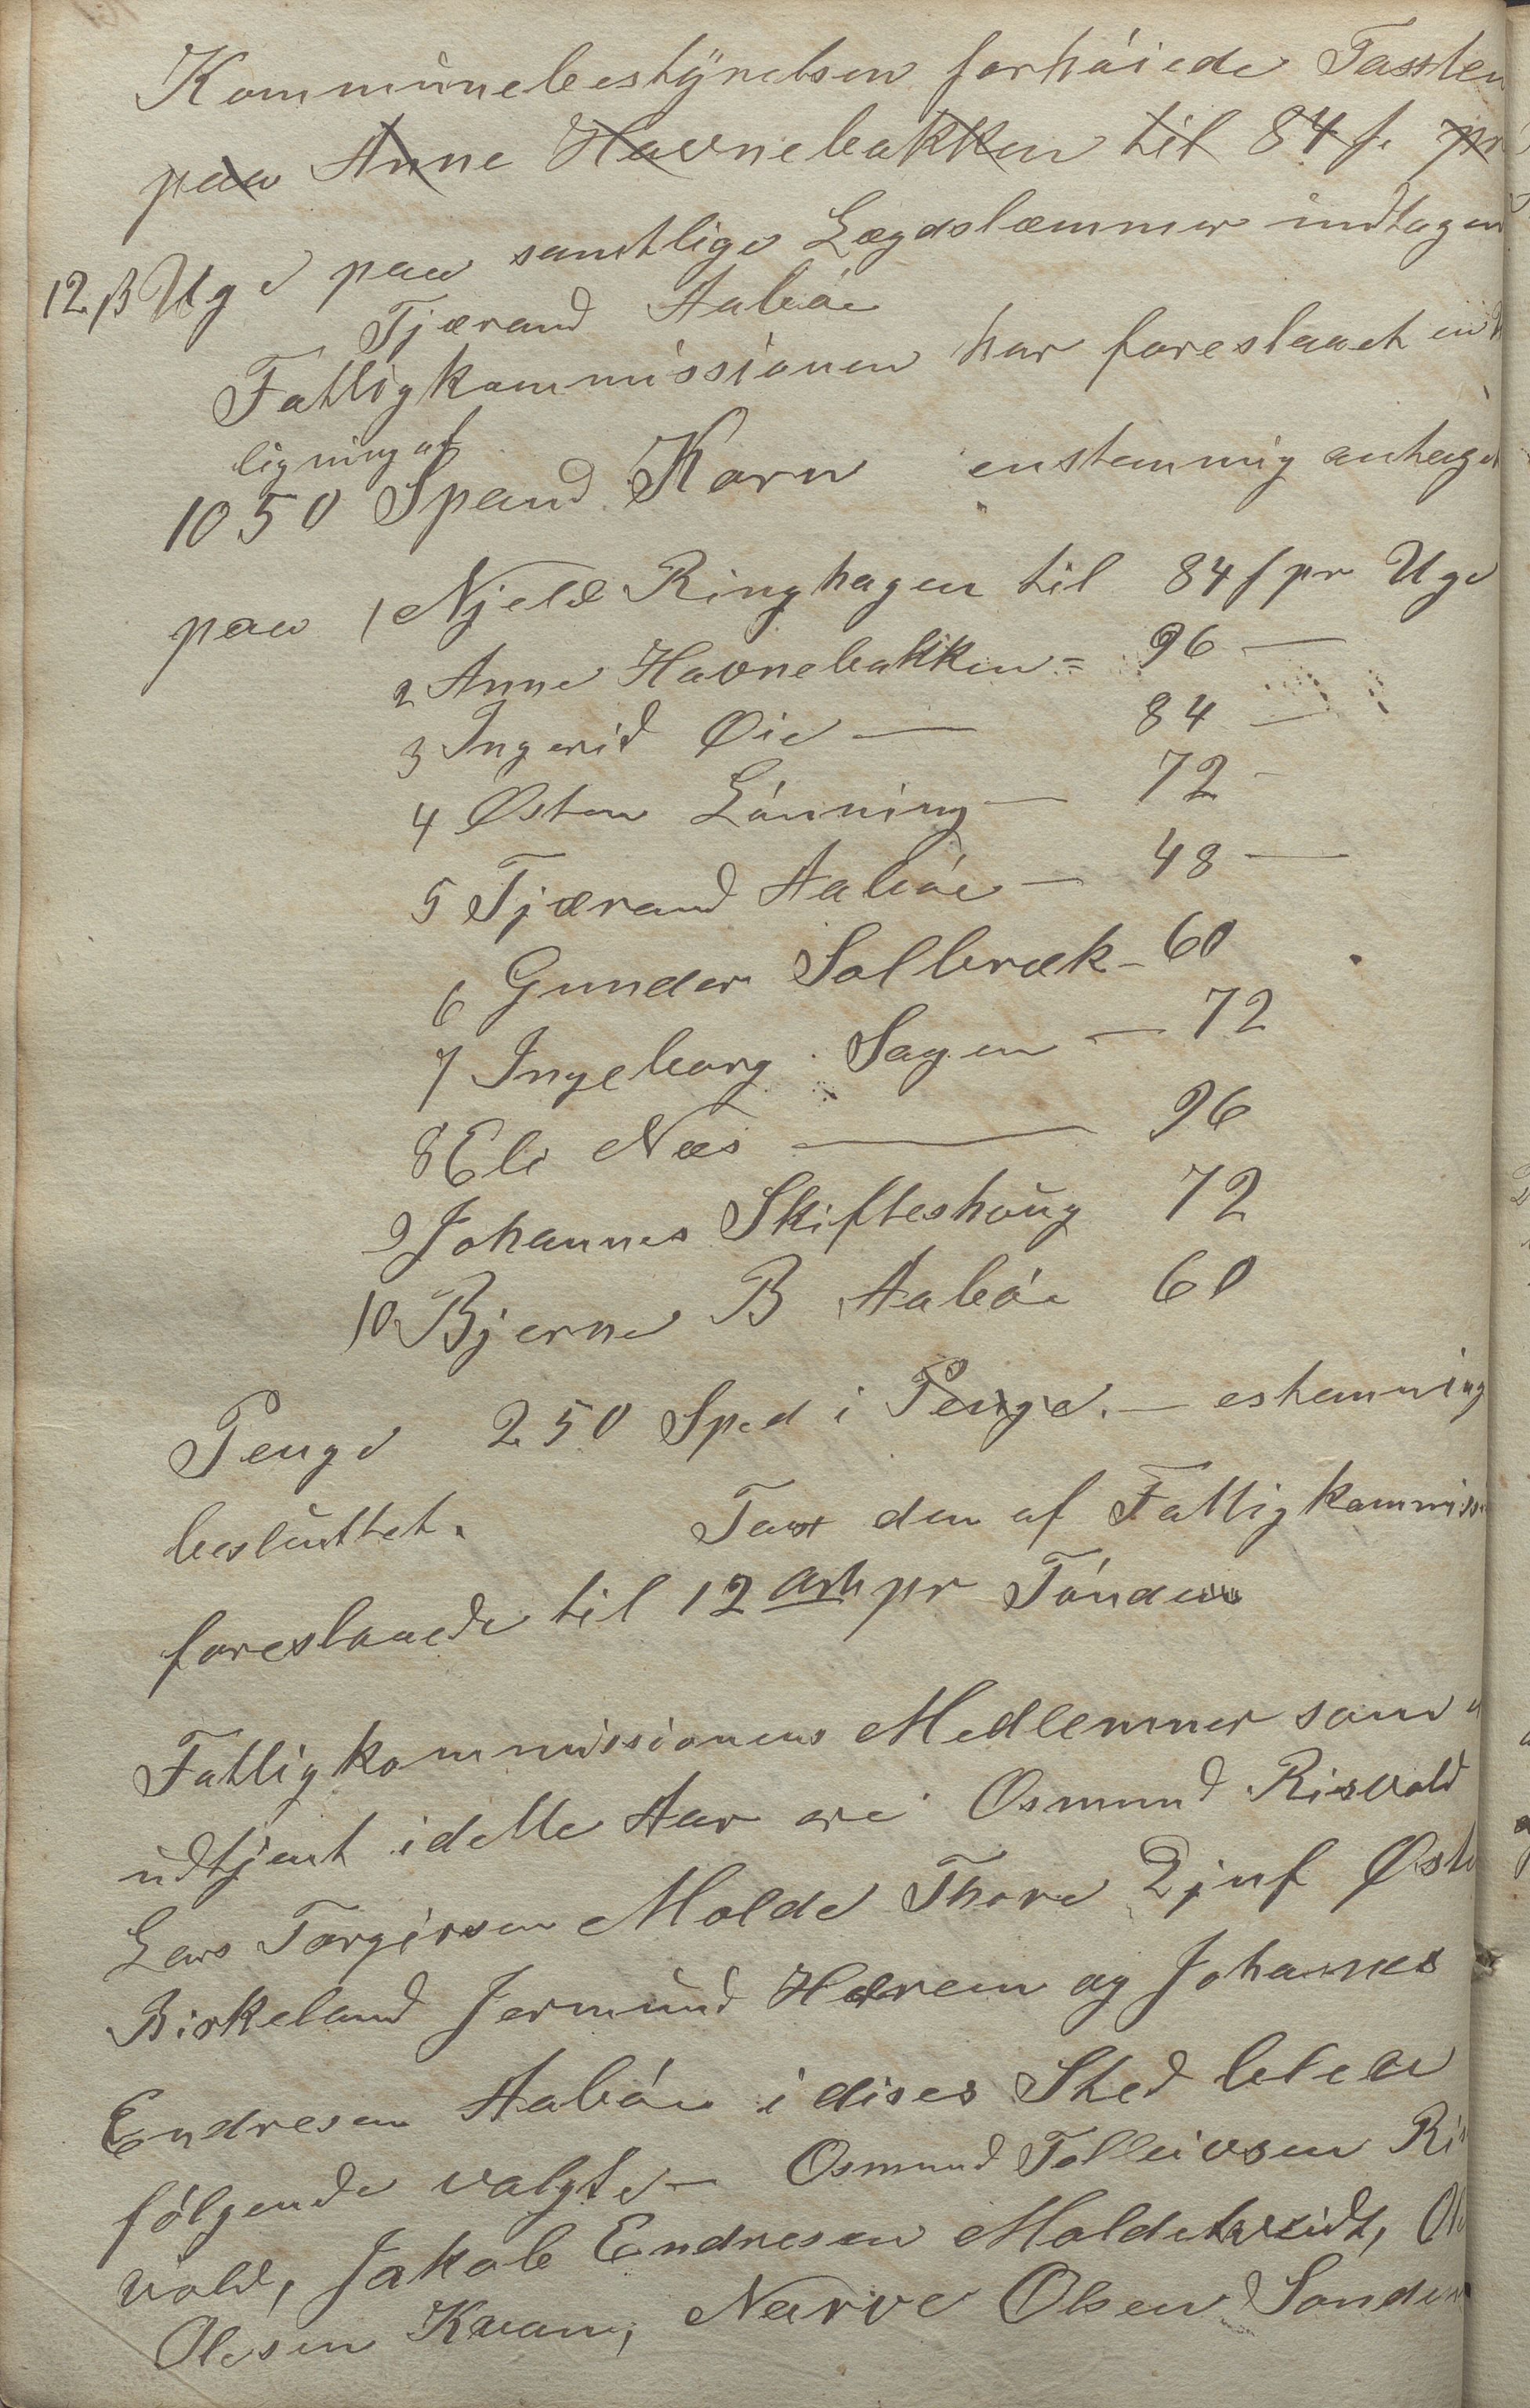 Kommunebestÿrelsen forhöiede Taxsten
paa Anne Havnebakken til 84 f. pr
12 β Uge paa samtlige Lægdslæmmer indtagen
Tjærand Aaböe
Fattigkommissionen har foreslaaet en
ligning af
1050 Spand Korn enstemmig antaget
paa 1 Njeld Ringhagen til 84 f pr Uge
2 Anne Havnebakken = 96 —
3 Ingerid Øie — 84 —
4 Østen Lönning — 72 —
5 Tjærand Aaböe — 48 —
6 Gunder Solbræk - 60
7 Ingeborg Sagen — 72
8 Eli Næs — 96
9 Johannes Skifteshoug 72
10 Bjerne B Aaböe 60
Penge 250 Spd i Penge. — estemming
besluttet. Taxt den af Fattigkommiss
foreslaaede til 12 ort pr Tönde
Fattigkommissionens Medlemmer som
udtjent i dette Aar ere Osmund Risvold
Lars Torgirsen Molde Thore Djuf Øste
Birkeland Jermund Hærem og Johannes
Endresen Aaböe i dises Sted bleve
fölgende valgte — Osmund Tolleivsen Ris
vold, Jakob Endresen Moldetveidt, Ole
Olesen Kvam, Narve Olsen Sonden